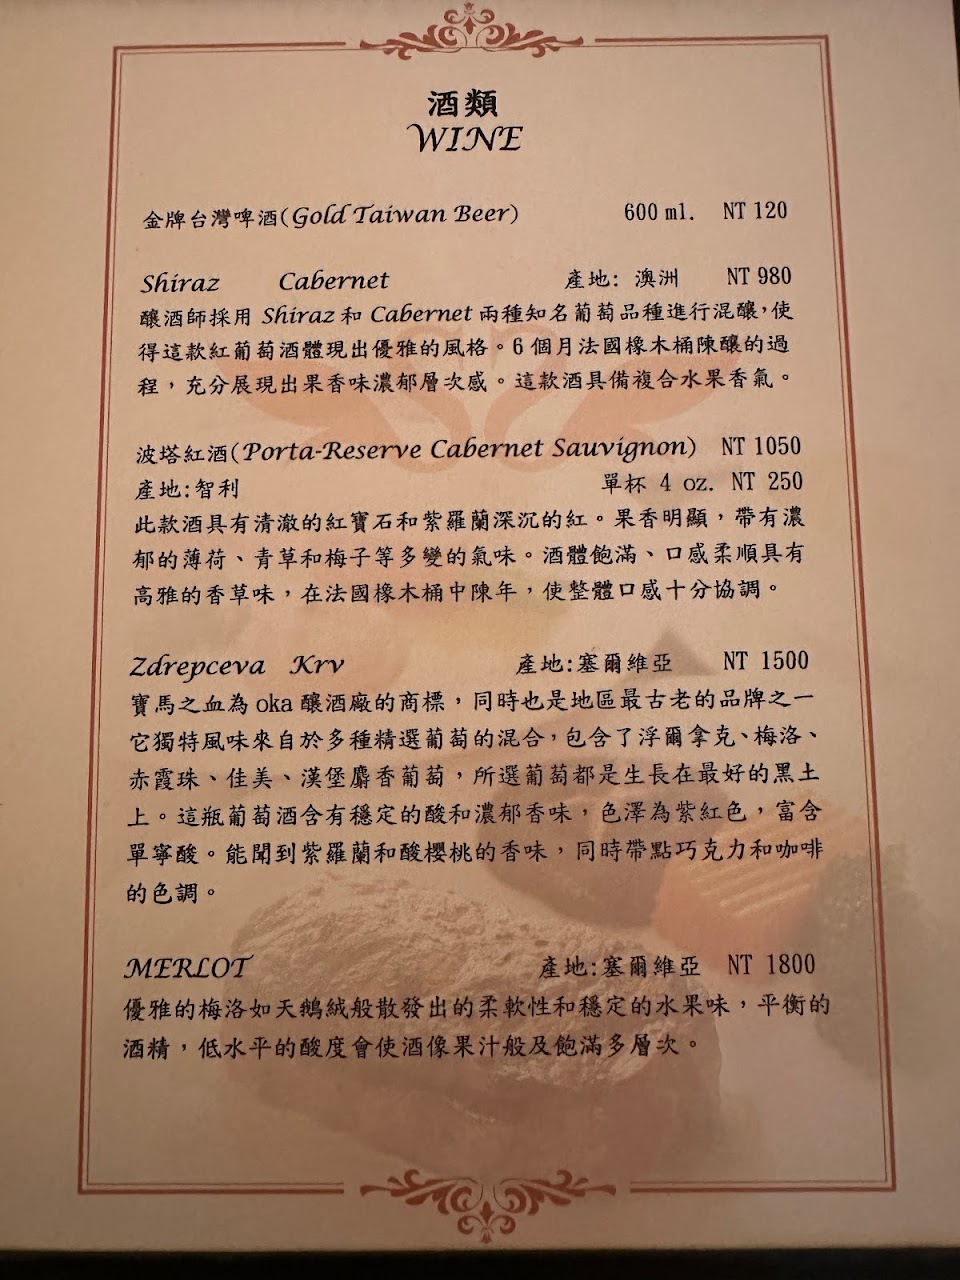 酒類
WINE
金牌台灣啤酒(Gold Taiwan Beer) 600 ml. NT 120
Shiraz Cabernet 產地: 澳洲 NT 980
釀酒師採用 Shiraz 和 Cabernet 兩種知名葡萄品種進行混釀,使
得這款紅葡萄酒體現出優雅的風格。6 個月法國橡木桶陳釀的過
程,充分展現出果香味濃郁層次感。這款酒具備複合水果香氣。
波塔紅酒(Porta-Reserve Cabernet Sauvignon) NT 1050
產地:智利 單杯 4 oz. NT 250
此款酒具有清澈的紅寶石和紫羅蘭深沉的紅。果香明顯,帶有濃
郁的薄荷、青草和梅子等多變的氣味。酒體飽滿、口感柔順具有
高雅的香草味,在法國橡木桶中陳年,使整體口感十分協調。
Zdrepceva Krv 產地:塞爾維亞 NT 1500
寶馬之血為 oka 釀酒廠的商標,同時也是地區最古老的品牌之一
它獨特風味來自於多種精選葡萄的混合,包含了浮爾拿克、梅洛、
赤霞珠、佳美、漢堡麝香葡萄,所選葡萄都是生長在最好的黑土
上。這瓶葡萄酒含有穩定的酸和濃郁香味,色澤為紫紅色,富含
單寧酸。能聞到紫羅蘭和酸櫻桃的香味,同時帶點巧克力和咖啡
的色調。
MERLOT 產地:塞爾維亞 NT 1800
優雅的梅洛如天鵝絨般散發出的柔軟性和穩定的水果味,平衡的
酒精,低水平的酸度會使酒像果汁般及飽滿多層次。